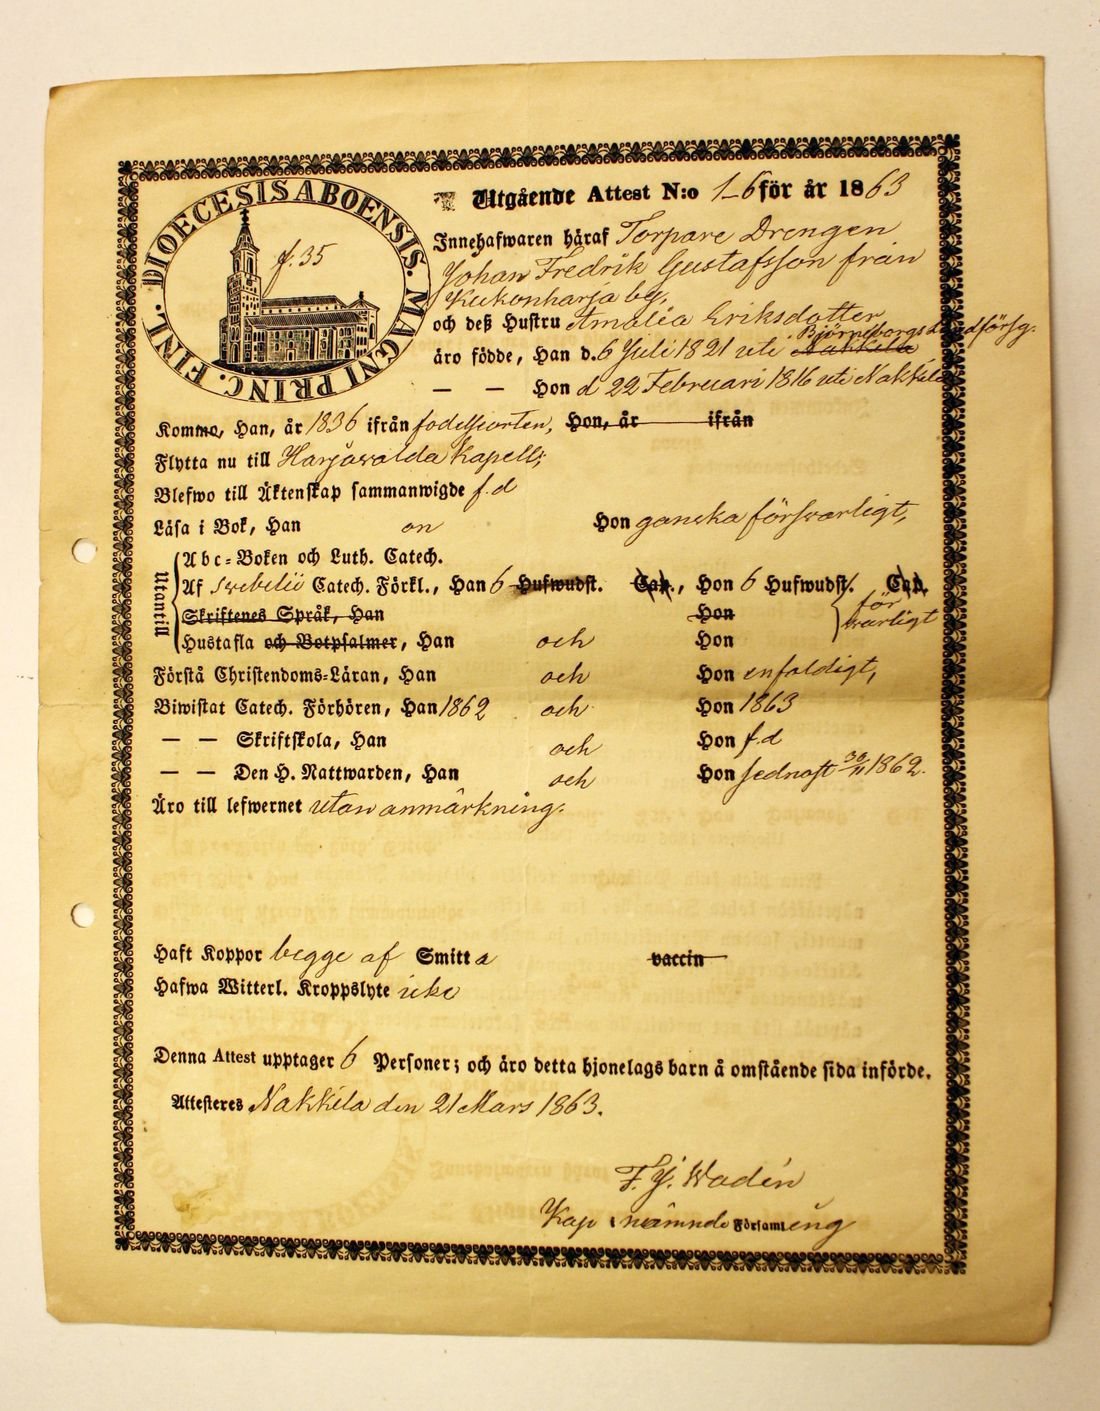 DIOECESIS ABOENSIS. MAGNI PRINC. FINL.
f. 35
Utgående Attest N:o 1-6 för år 1863
Innehafwaren häraf Torpare Drengen
Johan Fredrik Gustafsson från
Kukonharja by,
och deß Hustru Amalia Eriksdotter
Björneborgs Landförsg:
äro födde, Han d. 6 Juli 1821 uti Nakkila
— — Hon d 22 Februari 1816 uti Nakkila
Kommo, Han, år 1836 ifrån födelseorten, Hon, år ifrån
Flytta nu till Harjawalda Kapell;
Blefwo till Äktenskap sammanwigde f. d
Läsa i Bok, Han on Hon ganska försvarligt,
Utantill
Abc-Boken och Luth. Catech.
Af Swebelii Catech. Förkl., Han 6 Hufwudst. Cap., Hon 6 Hufwudst. Cap.
Skriftenes Språk, Han Hon för
warligt
Hustafla och Botpsalmer, Han och Hon
Förstå Christendoms-Läran, Han och Hon enfaldigt,
Biwistat Catech. Förhören, Han 1862 och Hon 1863
— — Skriftskola, Han och Hon f.d
— — Den H. Nattwarden, Han och Hon sednast 30/11 1862.
Äro till lefwernet utan anmärkning.
Haft Koppor begge af Smitta vaccin
Hafwa Witterl. Kroppslyte icke
Denna Attest upptager 6 Personer; och äro detta hjonelags barn å omstående sida införde.
Attesteres Nakkila den 21 Mars 1863.
F. J. Wadén
Kap i nämnde Församl eng